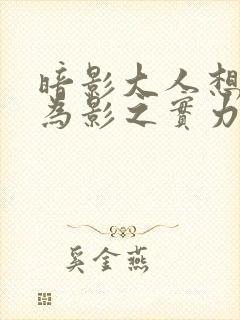 暗影大人想
為影之實力
奚金燕